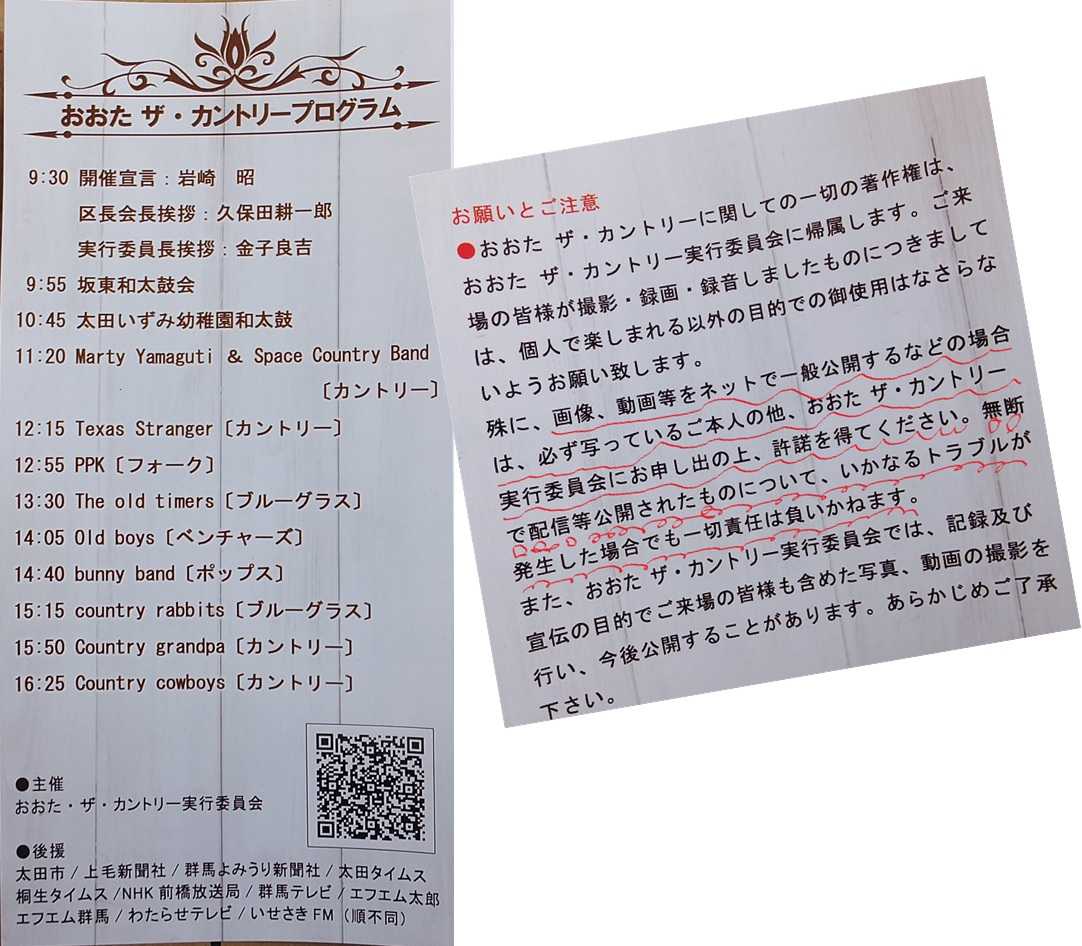 おおた ザ・カントリープログラム
9:30 開催宣言：岩崎　昭
区長会長挨拶：久保田耕一郎
実行委員長挨拶：金子良吉
9:55 坂東和太鼓会
10:45 太田いずみ幼稚園和太鼓
11:20 Marty Yamaguti ＆ Space Country Band
〔カントリー〕
12:15 Texas Stranger〔カントリー〕
12:55 PPK〔フォーク〕
13:30 The old timers〔ブルーグラス〕
14:05 Old boys〔ベンチャーズ〕
14:40 bunny band〔ポップス〕
15:15 country rabbits〔ブルーグラス〕
15:50 Country grandpa〔カントリー〕
16:25 Country cowboys〔カントリー〕
●主催
おおた・ザ・カントリー実行委員会
●後援
太田市 / 上毛新聞社 / 群馬よみうり新聞社 / 太田タイムス
桐生タイムス /NHK 前橋放送局 / 群馬テレビ / エフエム太郎
エフエム群馬 / わたらせテレビ / いせさき FM（順不同）
お願いとご注意
●おおた ザ・カントリーに関しての一切の著作権は、
おおた ザ・カントリー実行委員会に帰属します。ご来
場の皆様が撮影・録画・録音しましたものにつきまして
は、個人で楽しまれる以外の目的での御使用はなさらな
いようお願い致します。
殊に、画像、動画等をネットで一般公開するなどの場合
は、必ず写っているご本人の他、おおた ザ・カントリー
実行委員会にお申し出の上、許諾を得てください。無断
で配信等公開されたものについて、いかなるトラブルが
発生した場合でも一切責任は負いかねます。
また、おおた ザ・カントリー実行委員会では、記録及び
宣伝の目的でご来場の皆様も含めた写真、動画の撮影を
行い、今後公開することがあります。あらかじめご了承
下さい。